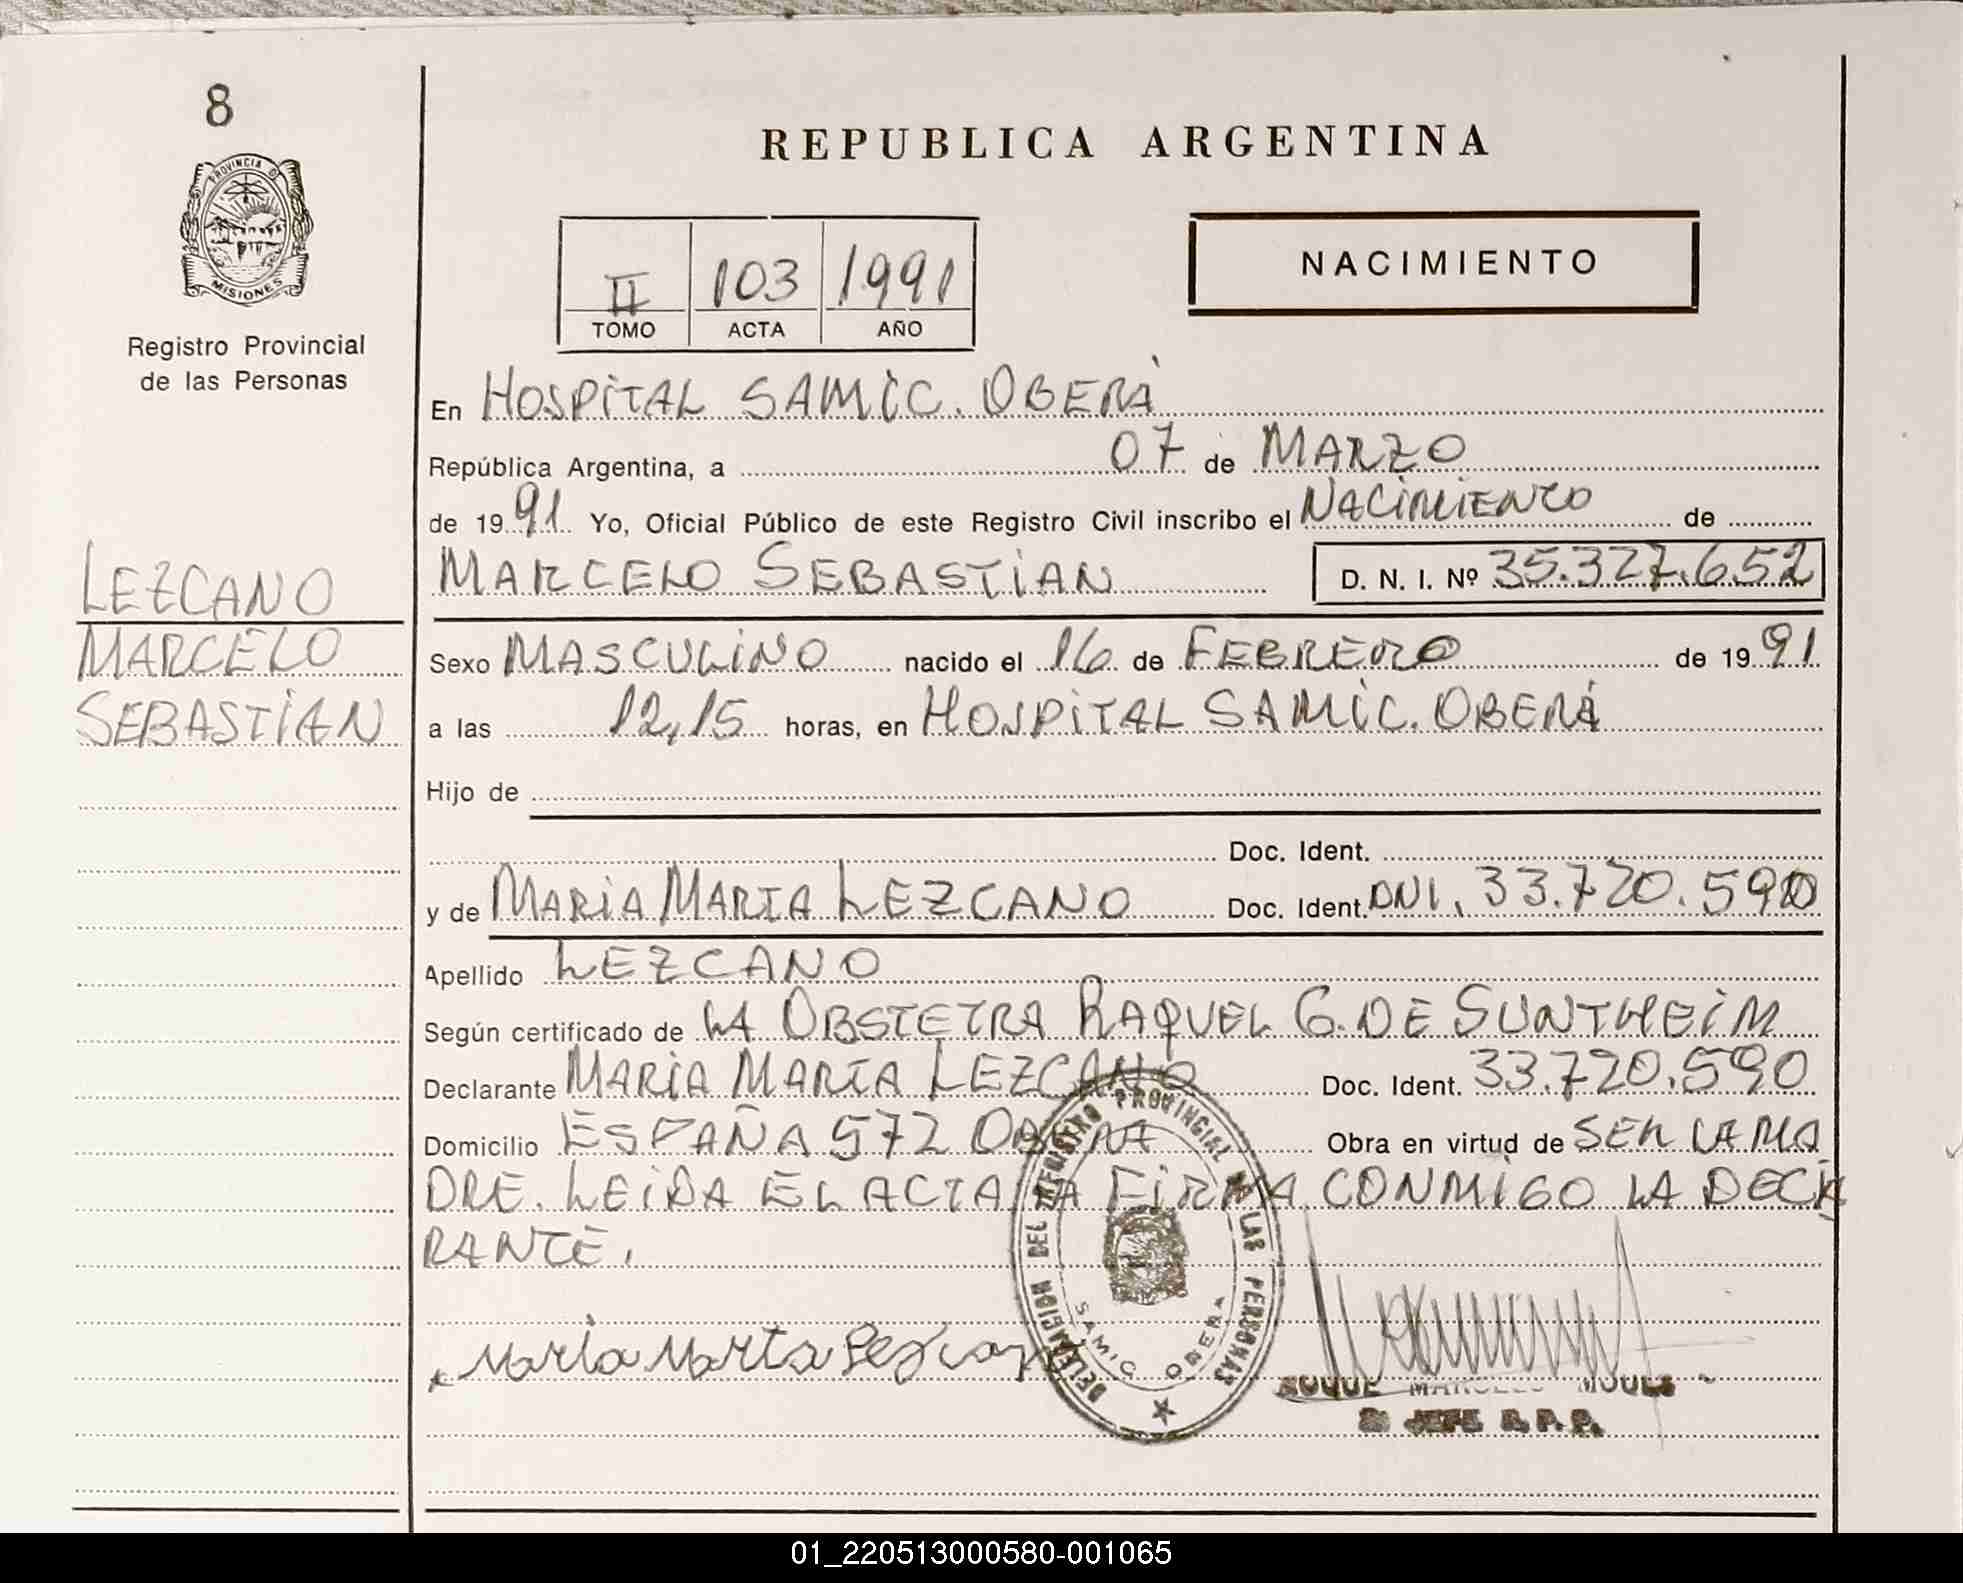 8
PROVINCIA D
MISIONES
Registro Provincial
de las Personas
LEZCANO
MARCELO
SEBASTIAN
REPUBLICA ARGENTINA
II 103 1991
TOMO ACTA AÑO
NACIMIENTO
En HOSPITAL SAMIC. OBERÁ
República Argentina, a 07 de MARZO
de 1991 Yo, Oficial Público de este Registro Civil inscribo el NACIMIENTO de
MARCELO SEBASTIAN D. N. I. Nº 35.327.652
Sexo MASCULINO nacido el 16 de FEBRERO de 1991
a las 12,15 horas, en HOSPITAL SAMIC. OBERÁ
Hijo de
Doc. Ident.
y de MARIA MARTA LEZCANO Doc. Ident. DNI. 33.720.590
Apellido LEZCANO
Según certificado de LA OBSTETRA RAQUEL G. DE SUNTHEIM
Declarante MARIA MARTA LEZCANO Doc. Ident. 33.720.590
Domicilio ESPAÑA 572 OBERA Obra en virtud de SER LA MA
DRE. LEIDA EL ACTA LA FIRMA CONMIGO LA DECLA
RANTE.
Maria Marta Lezcano
DELEGACION DEL REGISTRO PROVINCIAL DE LAS PERSONAS
SAMIC OBERA
ROQUE MARCELO
JEFE R.P.P.
01_220513000580-001065